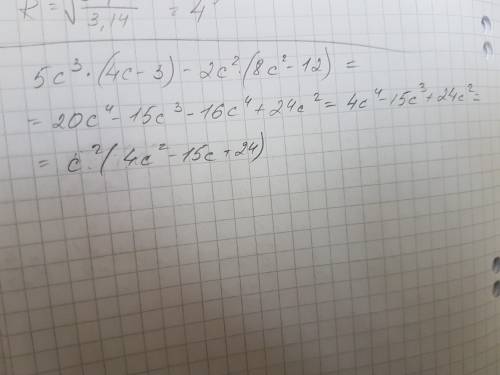 R = √ 3,14 = 4
5c³·(4c-3) - 2c²·(8c²-12) =
= 20c⁴ - 15c³ - 16c⁴ + 24c² = 4c⁴ - 15c³ + 24c² =
= c²·(4c² - 15c + 24)